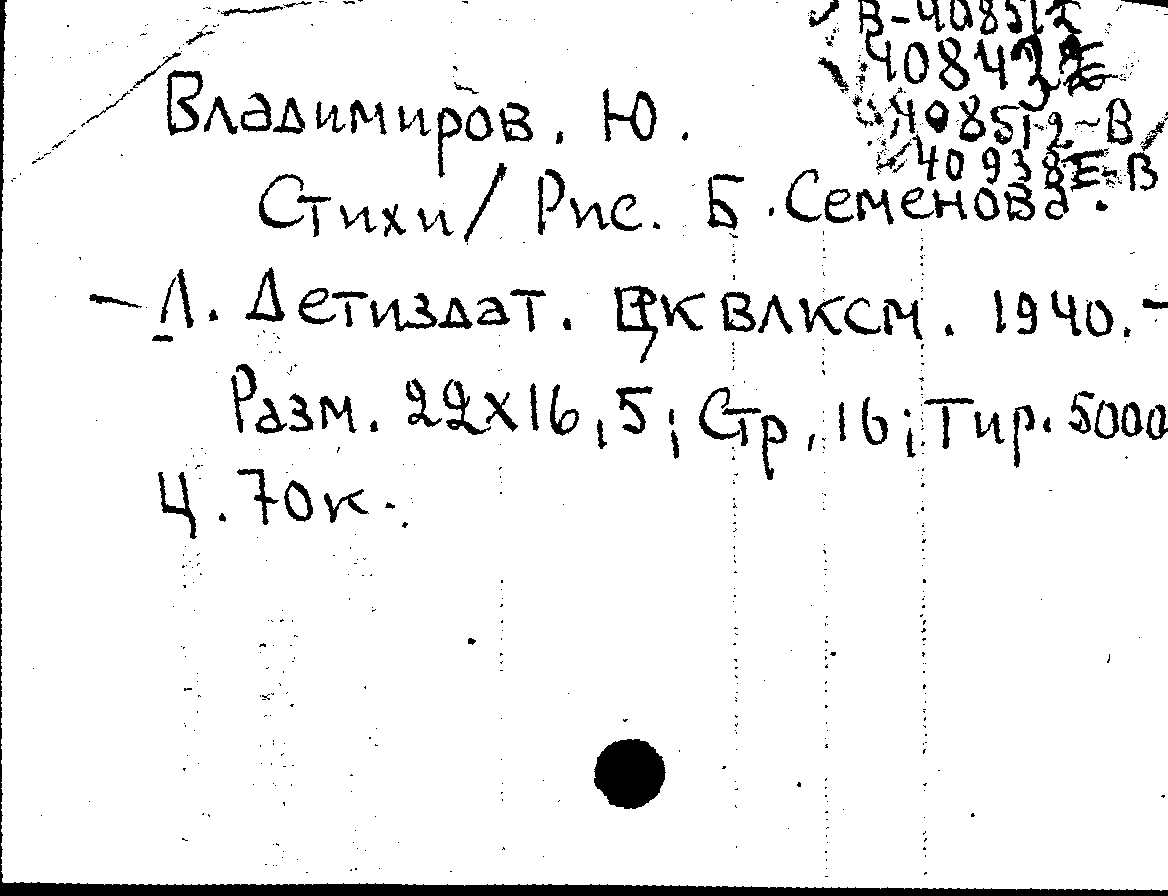 В-408512
408512-В
Владимиров. Ю.
Стихи/ Рис. Б. Семенова.
— Л. Детиздат. ЦК ВЛКСМ. 1940. -
Разм. 22х16,5; Стр, 16; Тир. 5000
Ц. 70к.